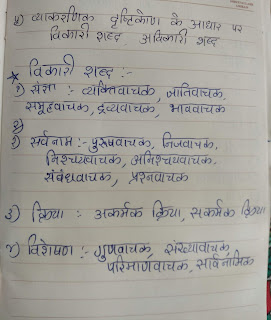 ४) व्याकरणिक दृष्टिकोण के आधार पर
विकारी शब्द अविकारी शब्द
* विकारी शब्द :-
१) संज्ञा :- व्यक्तिवाचक, जातिवाचक,
समूहवाचक, द्रव्यवाचक, भाववाचक
२)
१) सर्वनाम :- पुरुषवाचक, निजवाचक,
निश्चयवाचक, अनिश्चयवाचक,
संबंधवाचक, प्रश्नवाचक
३) क्रिया : अकर्मक क्रिया, सकर्मक क्रिया
४) विशेषण :- गुणवाचक, संख्यावाचक
परिमाणवाचक, सार्वनामिक